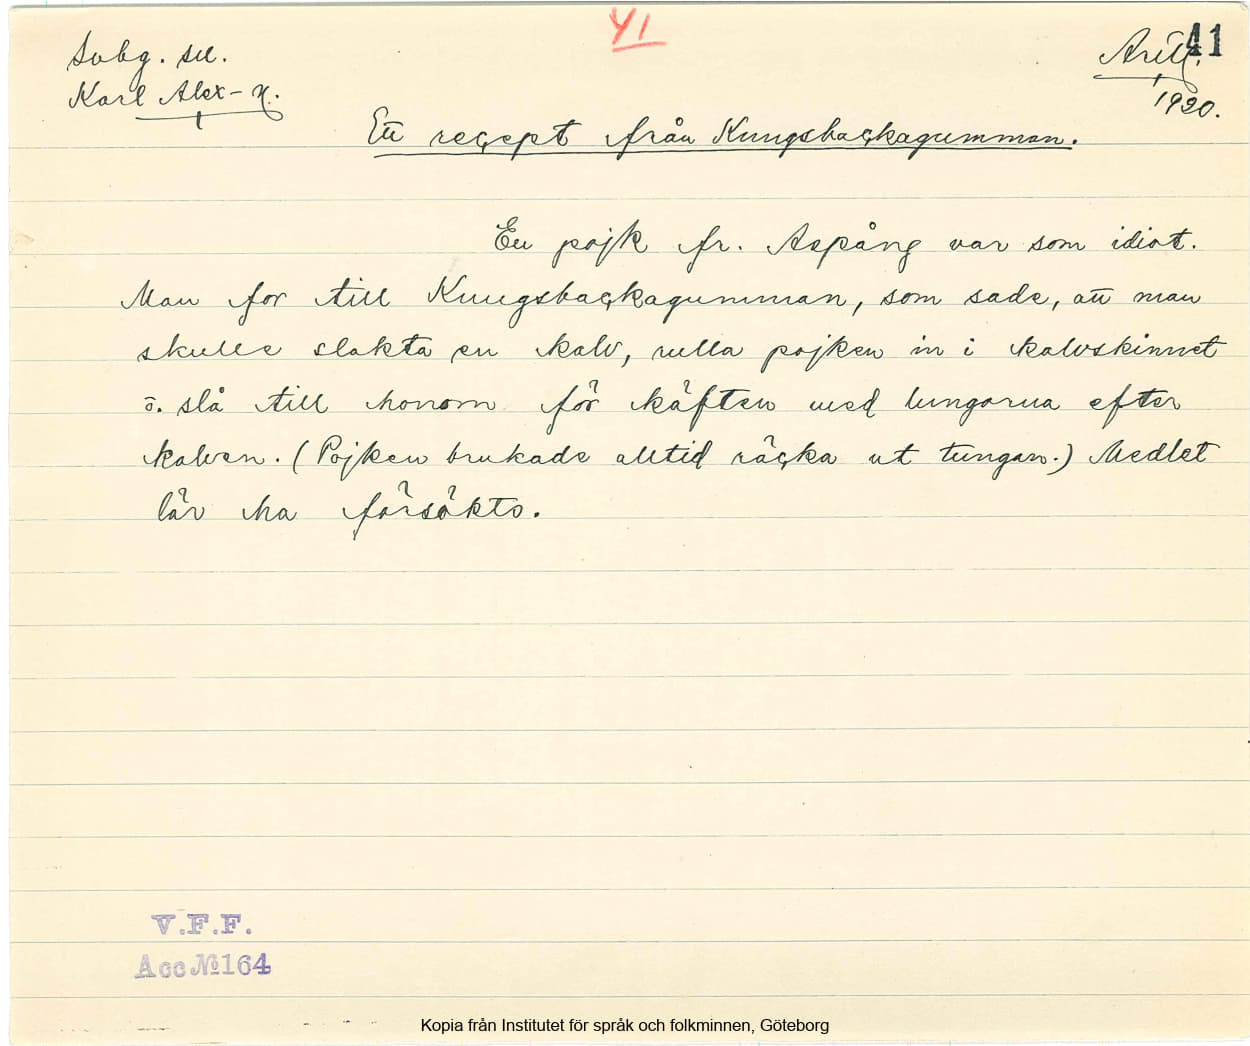 41
Svbg. sn.
Karl Alex-n.
Arill. 41
1920.
Ett recept från Kungsbackagumman.
En pojk fr. Aspång var som idiot.
Man for till Kungsbackagumman, som sade, att man
skulle slakta en kalv, rulla pojken in i kalvskinnet
o. slå till honom för käften med lungorna efter
kalven. (Pojken brukade alltid räcka ut tungan.) Medlet
lär ha försökts.
V.F.F.
Acc № 164
Kopia från Institutet för språk och folkminnen, Göteborg